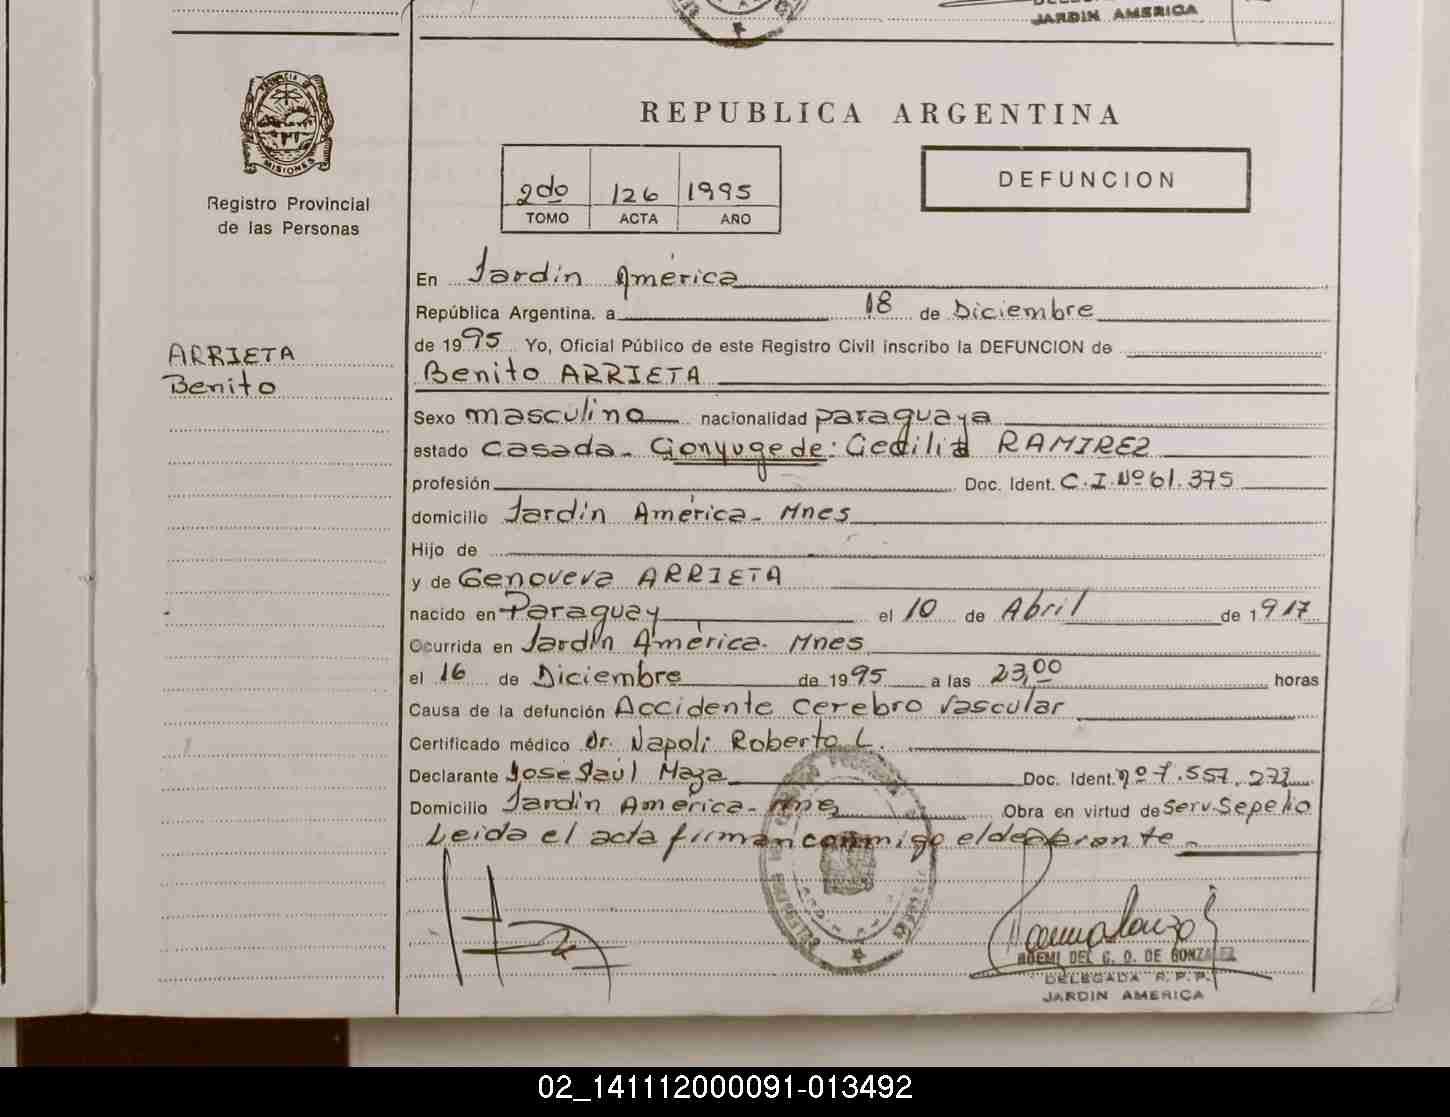 JARDIN AMERICA
PROVINCIA DE
MISIONES
Registro Provincial
de las Personas
REPUBLICA ARGENTINA
2do 126 1995
TOMO ACTA AÑO
DEFUNCION
En Jardin América
República Argentina, a 18 de Diciembre
de 1995 Yo, Oficial Público de este Registro Civil inscribo la DEFUNCION de
ARRIETA
Benito
Benito ARRIETA
Sexo masculino nacionalidad paraguaya
estado casada. Conyuge de: Cecilia RAMIREZ
profesión Doc. Ident. C.I. Nº 61.375
domicilio Jardin América - Mnes
Hijo de
y de Genoveva ARRIETA
nacido en Paraguay el 10 de Abril de 1917
Ocurrida en Jardin América. Mnes
el 16 de Diciembre de 1995 a las 23,00 horas
Causa de la defunción Accidente cerebro vascular
Certificado médico Dr. Napoli Roberto L.
Declarante José Saúl Maza Doc. Ident. Nº 7.557.273
Domicilio Jardin América - Mnes Obra en virtud de Serv. Sepelio
Leida el acta firman conmigo el declarante -
NOEMI DEL C. D. DE GONZALEZ
DELEGADA R. P. P.
JARDIN AMERICA
02_141112000091-013492